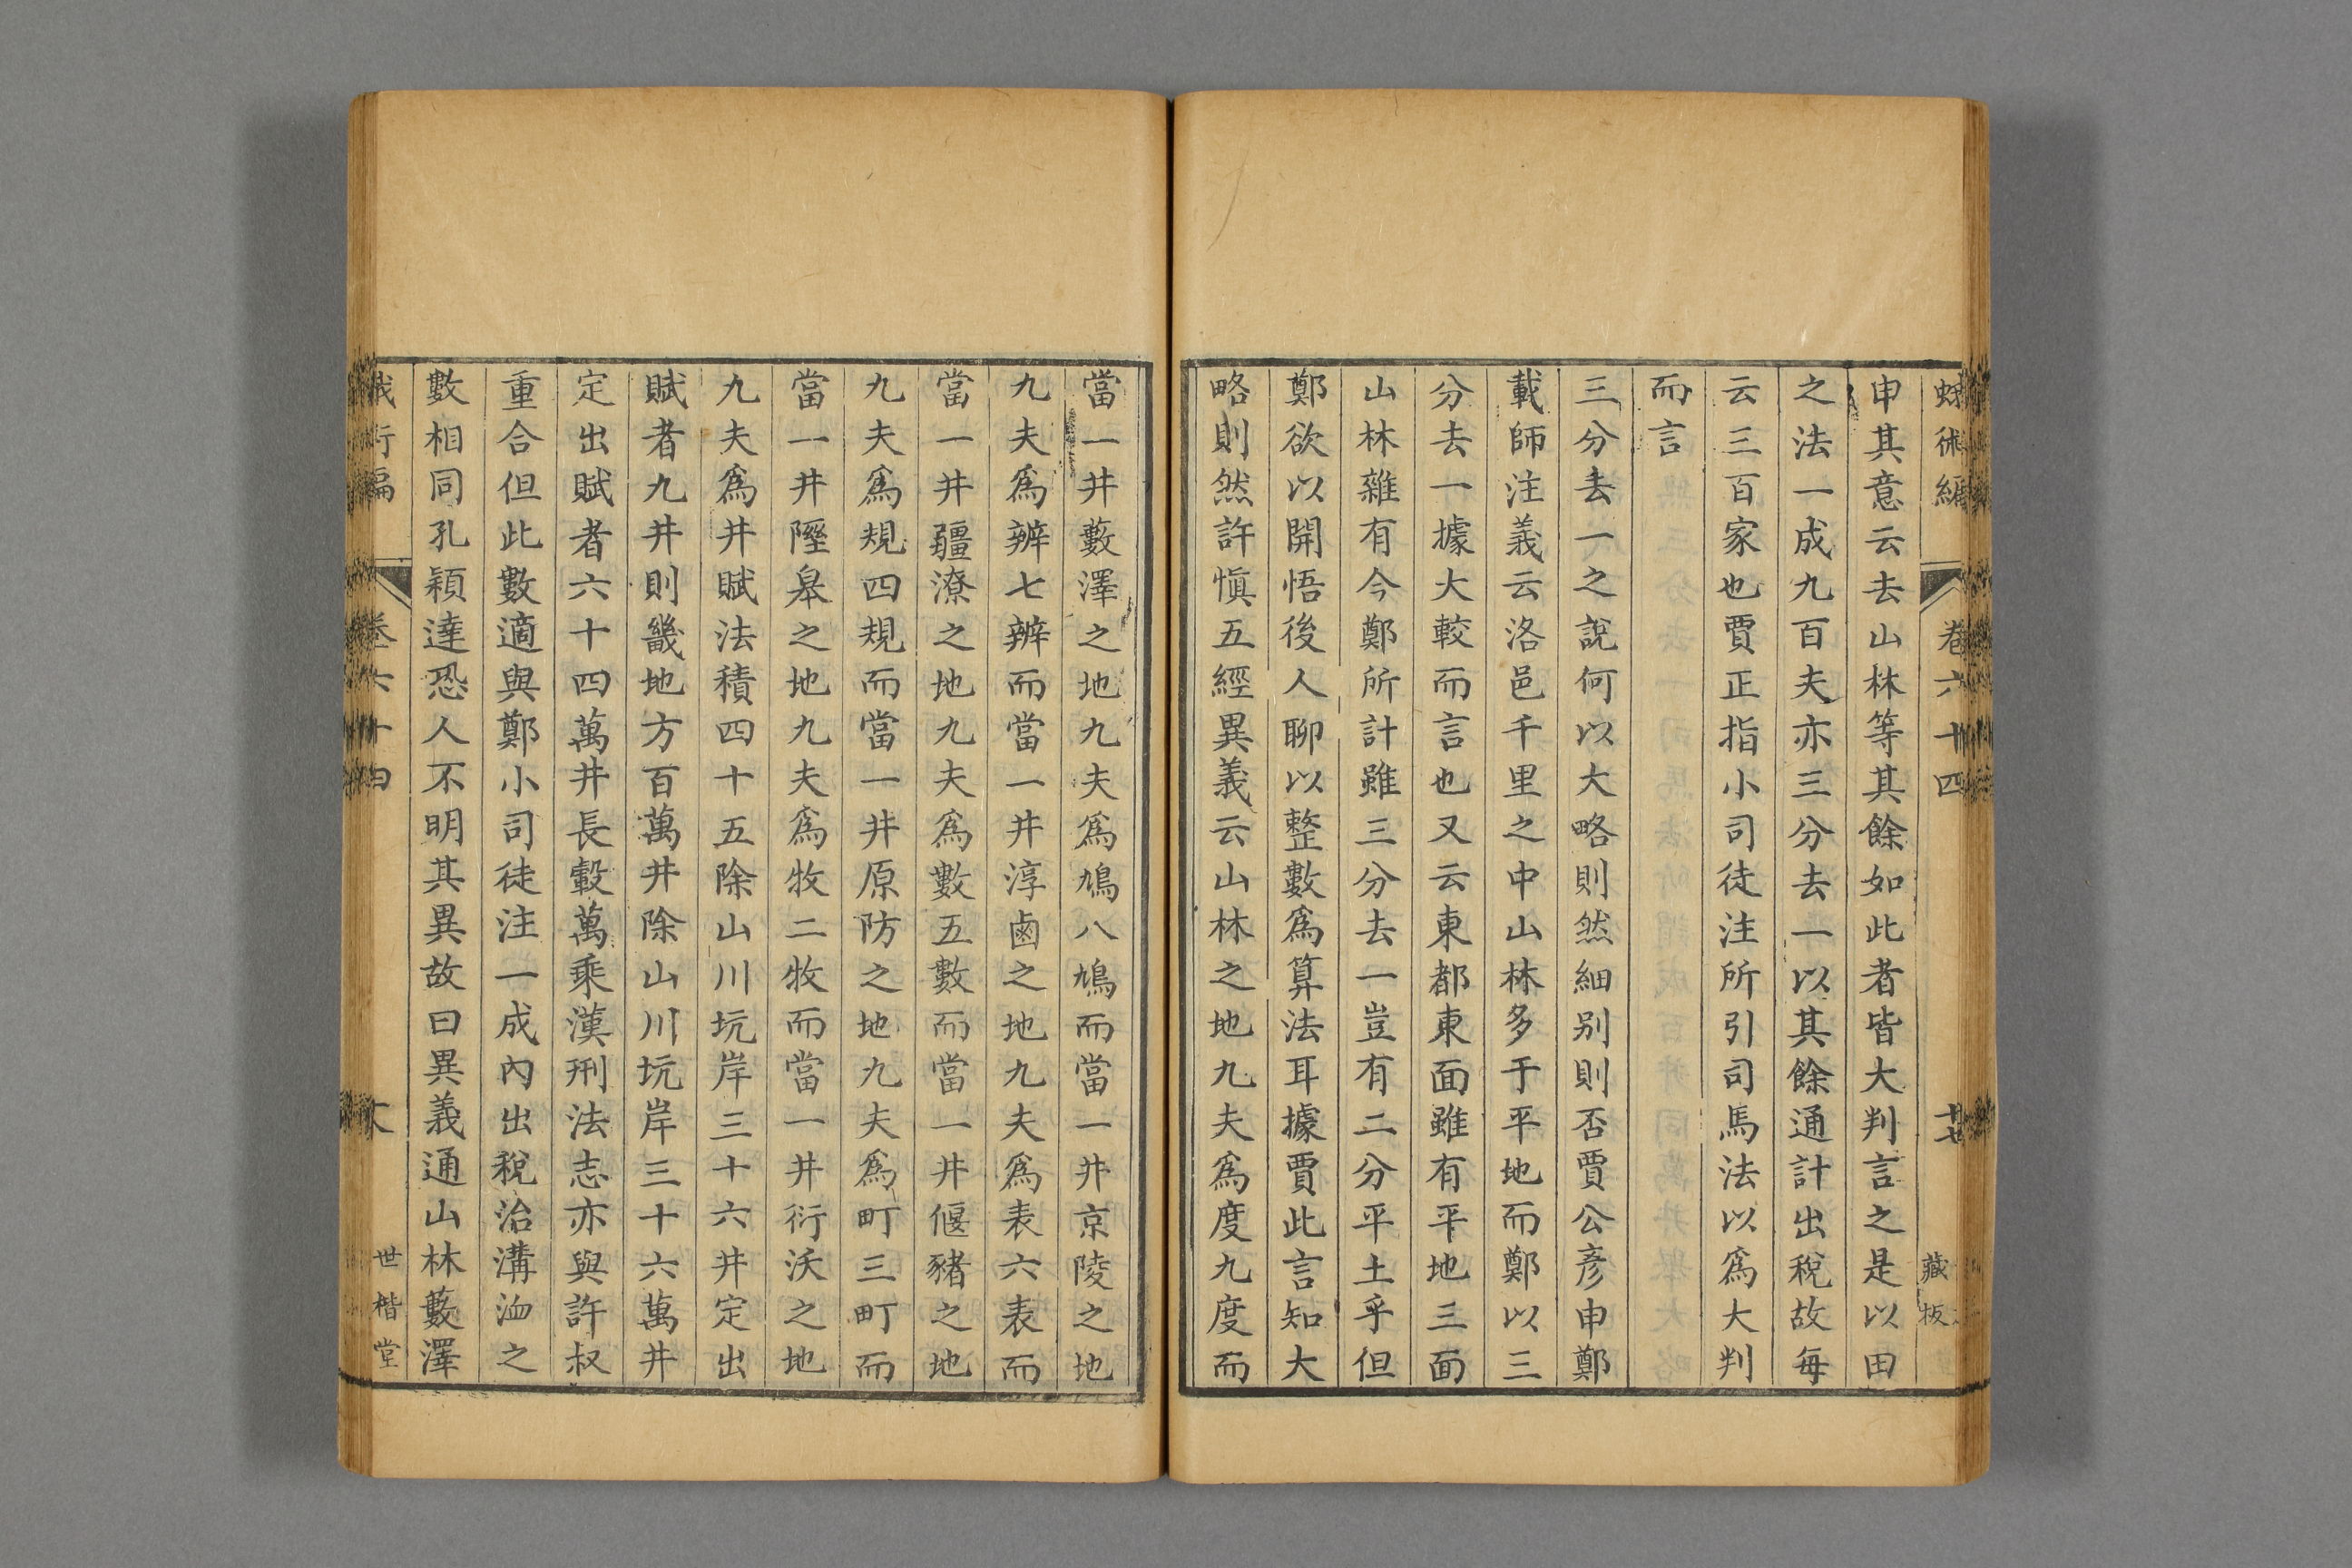 蛾術編 卷六十四 十七 藏板
申其意云去山林等其餘如此者皆大判言之是以田
之法一成九百夫亦三分去一以其餘通計出稅故每
云三百家也賈正指小司徒注所引司馬法以爲大判
而言
三分去一之說何以大略則然細别則否賈公彦申鄭
載師注義云洛邑千里之中山林多于平地而鄭以三
分去一據大較而言也又云東都東面雖有平地三面
山林雜有今鄭所計雖三分去一豈有二分平土乎但
鄭欲以開悟後人聊以整數爲算法耳據賈此言知大
略則然許愼五經異義云山林之地九夫爲度九度而
當一井藪澤之地九夫爲鳩八鳩而當一井京陵之地
九夫爲辨七辨而當一井淳鹵之地九夫爲表六表而
當一井疆潦之地九夫爲數五數而當一井偃豬之地
九夫爲規四規而當一井原防之地九夫爲町三町而
當一井隰皋之地九夫爲牧二牧而當一井衍沃之地
九夫爲井賦法積四十五除山川坑岸三十六井定出
賦者九井則畿地方百萬井除山川坑岸三十六萬井
定出賦者六十四萬井長轂萬乘漢刑法志亦與許叔
重合但此數適與鄭小司徒注一成內出稅治溝洫之
數相同孔穎達恐人不明其異故曰異義通山林藪澤
術編 卷六十四 世楷堂